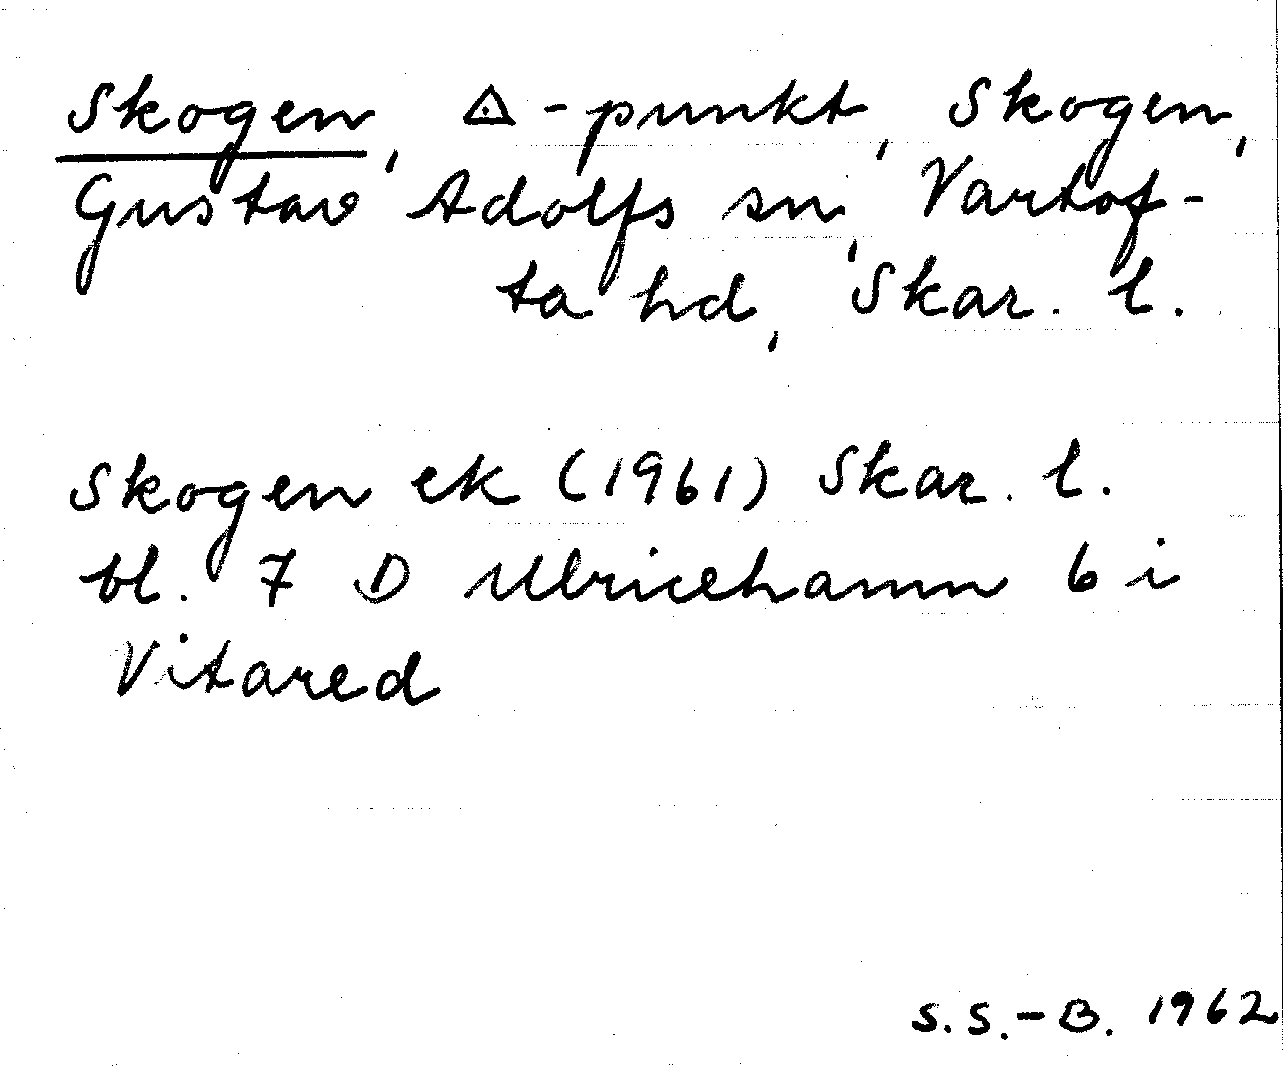 Skogen, △-punkt, Skogen,
Gustav Adolfs sn, Vartof-
ta hd, Skar. l.
Skogen ek (1961) Skar. l.
bl. 7 D Ulricehamn 6 i
Vitared
S.S.-B. 1962